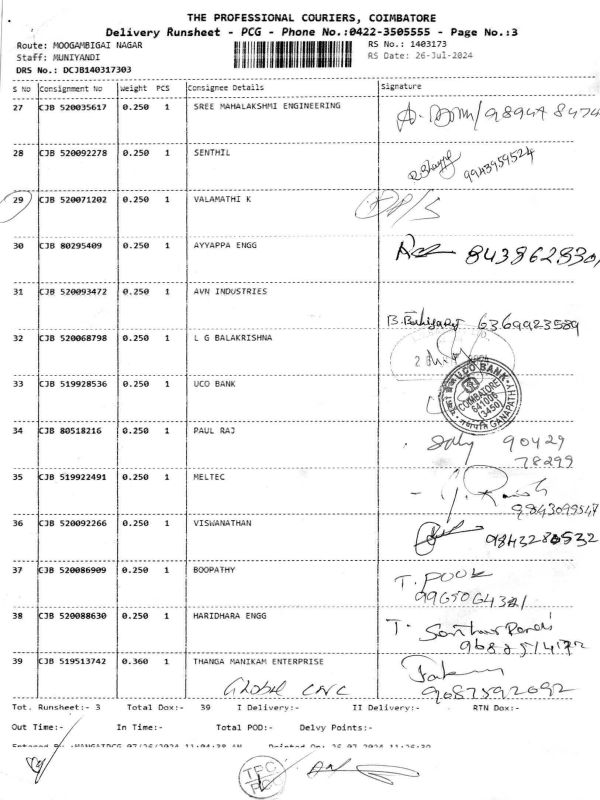 THE PROFESSIONAL COURIERS, COIMBATORE
Delivery Runsheet - PCG - Phone No.:0422-3505555 - Page No.:3
Route: MOOGAMBIGAI NAGAR RS No.: 1403173
Staff: MUNIYANDI RS Date: 26-Jul-2024
DRS No.: DCJB140317303
S No Consignment No Weight PCS Consignee Details Signature
27 CJB 520035617 0.250 1 SREE MAHALAKSHMI ENGINEERING
28 CJB 520092278 0.250 1 SENTHIL 9943959524
29 CJB 520071202 0.250 1 VALAMATHI K
30 CJB 80295409 0.250 1 AYYAPPA ENGG 843862830
31 CJB 520093472 0.250 1 AVN INDUSTRIES
6369923589
32 CJB 520068798 0.250 1 L G BALAKRISHNA
33 CJB 519928536 0.250 1 UCO BANK UCO BANK COIMBATORE 641006 (3450) GANAPATHY
34 CJB 80518216 0.250 1 PAUL RAJ 90429
78299
35 CJB 519922491 0.250 1 MELTEC
9843099547
36 CJB 520092266 0.250 1 VISWANATHAN 9843280532
37 CJB 520086909 0.250 1 BOOPATHY
38 CJB 520088630 0.250 1 HARIDHARA ENGG
39 CJB 519513742 0.360 1 THANGA MANIKAM ENTERPRISE
GLOBAL CNC 9087592692
Tot. Runsheet:- 3 Total Dox:- 39 I Delivery:- II Delivery:- RTN Dox:-
Out Time:- In Time:- Total POD:- Delvy Points:-